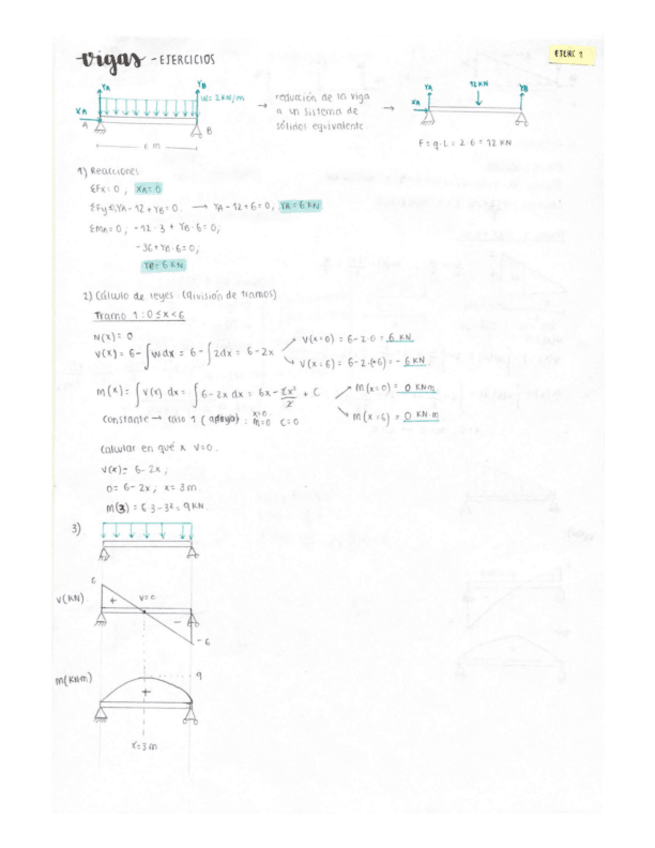 vigas - EJERCICIOS
EJERC 1
YA
YB
w= 2KN/m
XA
A
B
6 m
→ reducción de la viga
a un sistema de
sólidos equivalente →
YA
12 KN
YB
XA
F = q·L = 2·6 = 12 KN
1) Reacciones
ΣFx=0, XA=0
ΣFy=0, YA-12+YB=0. → YA-12+6=0, YA=6 KN
ΣMA=0; -12·3 + YB·6=0;
-36+YB·6=0;
YB=6 KN
2) Cálculo de leyes (división de tramos)
Tramo 1: 0≤x<6
N(x)= 0
V(x)= 6-∫wdx = 6-∫2dx = 6-2x
V(x=0) = 6-2·0 = 6 KN
V(x=6) = 6-2·(+6) = -6 KN
M(x)= ∫V(x) dx = ∫6-2x dx = 6x-2x²/2 + C
M(x=0)= 0 KNm
M(x=6)= 0 KN·m
Constante → caso 1 (apoyo): x=0 M=0 C=0
Calcular en qué x V=0.
V(x)= 6-2x;
0= 6-2x; x=3m.
M(3) = 6·3-3²=9KN
3)
V(KN)
6
+
V=0
-
-6
M(KNm)
9
+
x=3m